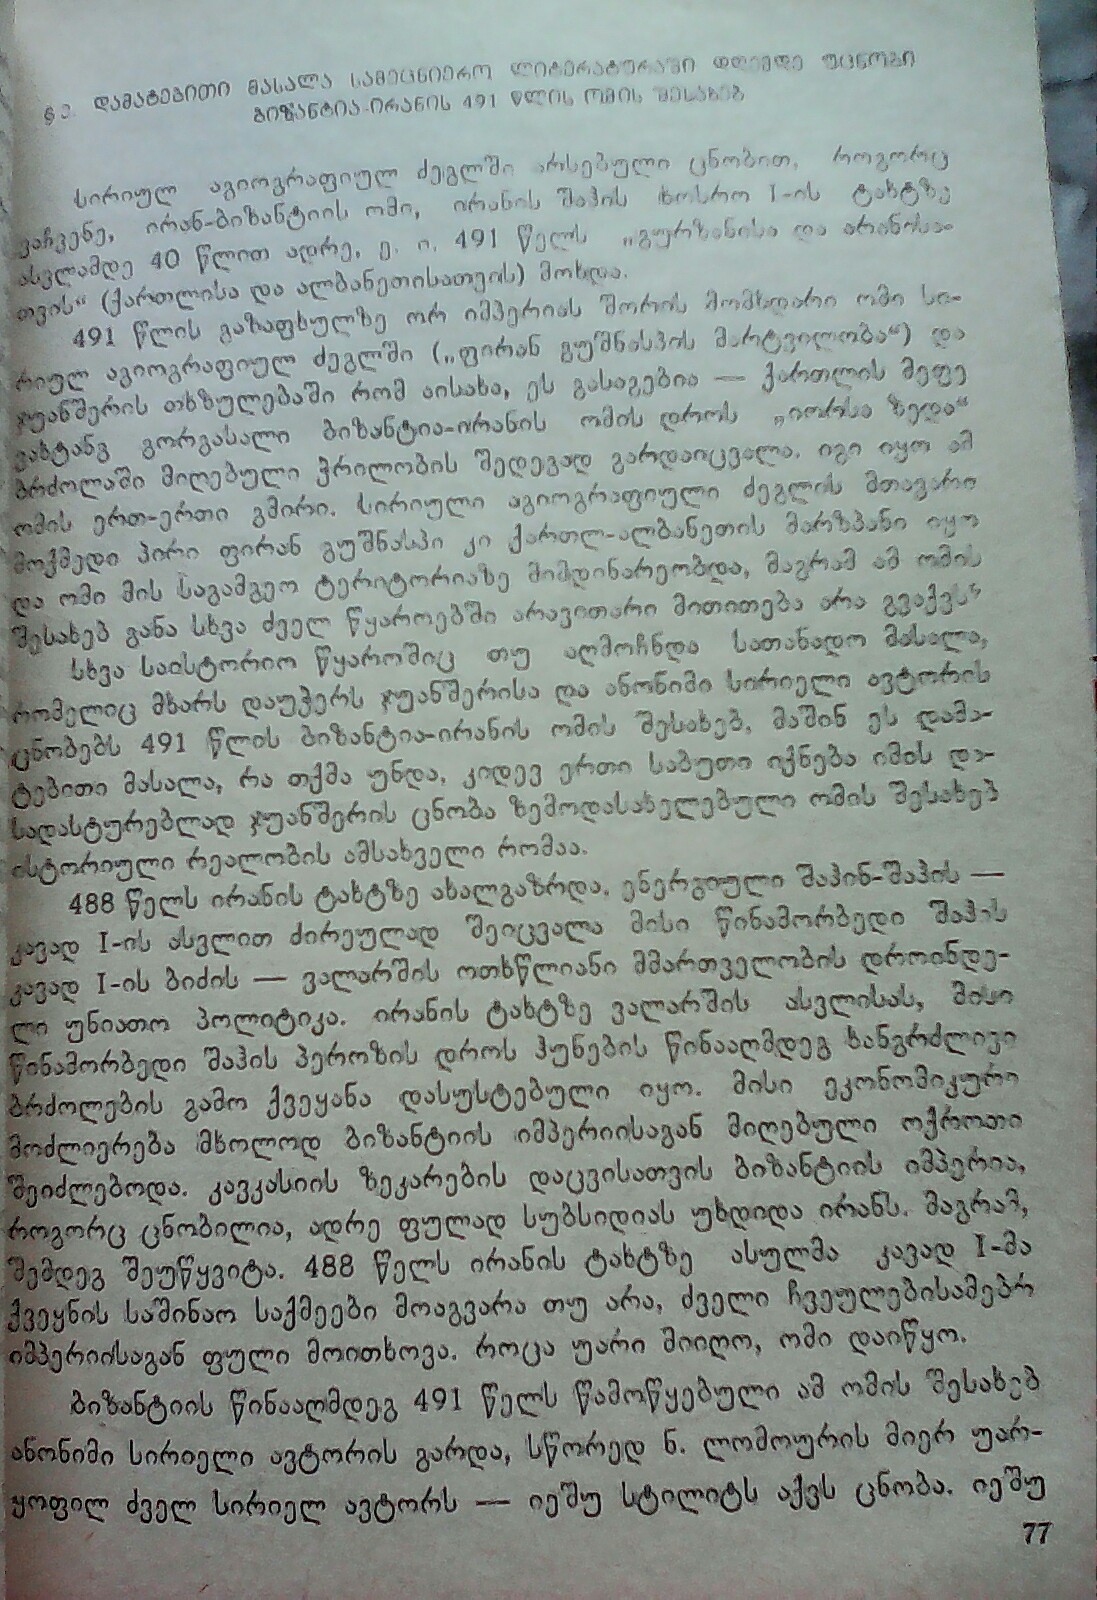 § 3. ᲓᲐᲛᲐᲢᲔᲑᲘᲗᲘ ᲛᲐᲡᲐᲚᲐ ᲡᲐᲛᲔᲪᲜᲘᲔᲠᲝ ᲚᲘᲢᲔᲠᲐᲢᲣᲠᲐᲨᲘ ᲓᲦᲔᲛᲓᲔ ᲣᲪᲜᲝᲑᲘ
ᲑᲘᲖᲐᲜᲢᲘᲐ-ᲘᲠᲐᲜᲘᲡ 491 ᲬᲚᲘᲡ ᲝᲛᲘᲡ ᲨᲔᲡᲐᲮᲔᲑ
სირიულ აგიოგრაფიულ ძეგლში არსებული ცნობით, როგორც
ვაჩვენე, ირან-ბიზანტიის ომი, ირანის შაჰის ხოსრო I-ის ტახტზე
ასვლამდე 40 წლით ადრე, ე. ი. 491 წელს „გურზანისა და არანისა-
თვის“ (ქართლისა და ალბანეთისათვის) მოხდა.
491 წლის გაზაფხულზე ორ იმპერიას შორის მომხდარი ომი სი-
რიულ აგიოგრაფიულ ძეგლში („ფირან გუშნასპის მარტვილობა“) და
ჯუანშერის თხზულებაში რომ აისახა, ეს გასაგებია — ქართლის მეფე
ვახტანგ გორგასალი ბიზანტია-ირანის ომის დროს „იორსა ზედა“
ბრძოლაში მიღებული ჭრილობის შედეგად გარდაიცვალა. იგი იყო ამ
ომის ერთ-ერთი გმირი. სირიული აგიოგრაფიული ძეგლის მთავარი
მოქმედი პირი ფირან გუშნასპი კი ქართლ-ალბანეთის მარზპანი იყო
და ომი მის საგამგეო ტერიტორიაზე მიმდინარეობდა, მაგრამ ამ ომის
შესახებ განა სხვა ძველ წყაროებში არავითარი მითითება არა გვაქვს?
სხვა საისტორიო წყაროშიც თუ აღმოჩნდა სათანადო მასალა,
რომელიც მხარს დაუჭერს ჯუანშერისა და ანონიმი სირიელი ავტორის
ცნობებს 491 წლის ბიზანტია-ირანის ომის შესახებ, მაშინ ეს დამა-
ტებითი მასალა, რა თქმა უნდა, კიდევ ერთი საბუთი იქნება იმის და-
სადასტურებლად ჯუანშერის ცნობა ზემოდასახელებული ომის შესახებ
ისტორიული რეალობის ამსახველი რომაა.
488 წელს ირანის ტახტზე ახალგაზრდა, ენერგიული შაჰინ-შაჰის —
კავად I-ის ასვლით ძირეულად შეიცვალა მისი წინამორბედი შაჰის
კავად I-ის ბიძის — ვალარშის ოთხწლიანი მმართველობის დროინდე-
ლი უნიათო პოლიტიკა. ირანის ტახტზე ვალარშის ასვლისას, მისი
წინამორბედი შაჰის პეროზის დროს ჰუნების წინააღმდეგ ხანგრძლივი
ბრძოლების გამო ქვეყანა დასუსტებული იყო. მისი ეკონომიკური
მოძლიერება მხოლოდ ბიზანტიის იმპერიისაგან მიღებული ოქროთი
შეიძლებოდა. კავკასიის ზეკარების დაცვისათვის ბიზანტიის იმპერია,
როგორც ცნობილია, ადრე ფულად სუბსიდიას უხდიდა ირანს. მაგრამ,
შემდეგ შეუწყვიტა. 488 წელს ირანის ტახტზე ასულმა კავად I-მა
ქვეყნის საშინაო საქმეები მოაგვარა თუ არა, ძველი ჩვეულებისამებრ
იმპერიისაგან ფული მოითხოვა. როცა უარი მიიღო, ომი დაიწყო.
ბიზანტიის წინააღმდეგ 491 წელს წამოწყებული ამ ომის შესახებ
ანონიმი სირიელი ავტორის გარდა, სწორედ ნ. ლომოურის მიერ უარ-
ყოფილ ძველ სირიელ ავტორს — იეშუ სტილიტს აქვს ცნობა. იეშუ
77